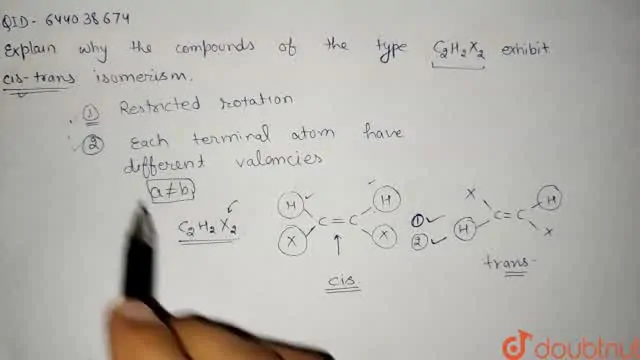 QID- 644038674
Explain why the compounds of the type C₂H₂X₂ exhibit
cis-trans isomerism.
① Restricted rotation
② Each terminal atom have
different valancies
a≠b
C₂H₂X₂
H H
C=C
X X
cis
① ✓
② ✓
X H
C=C
H X
trans-
doubtnut